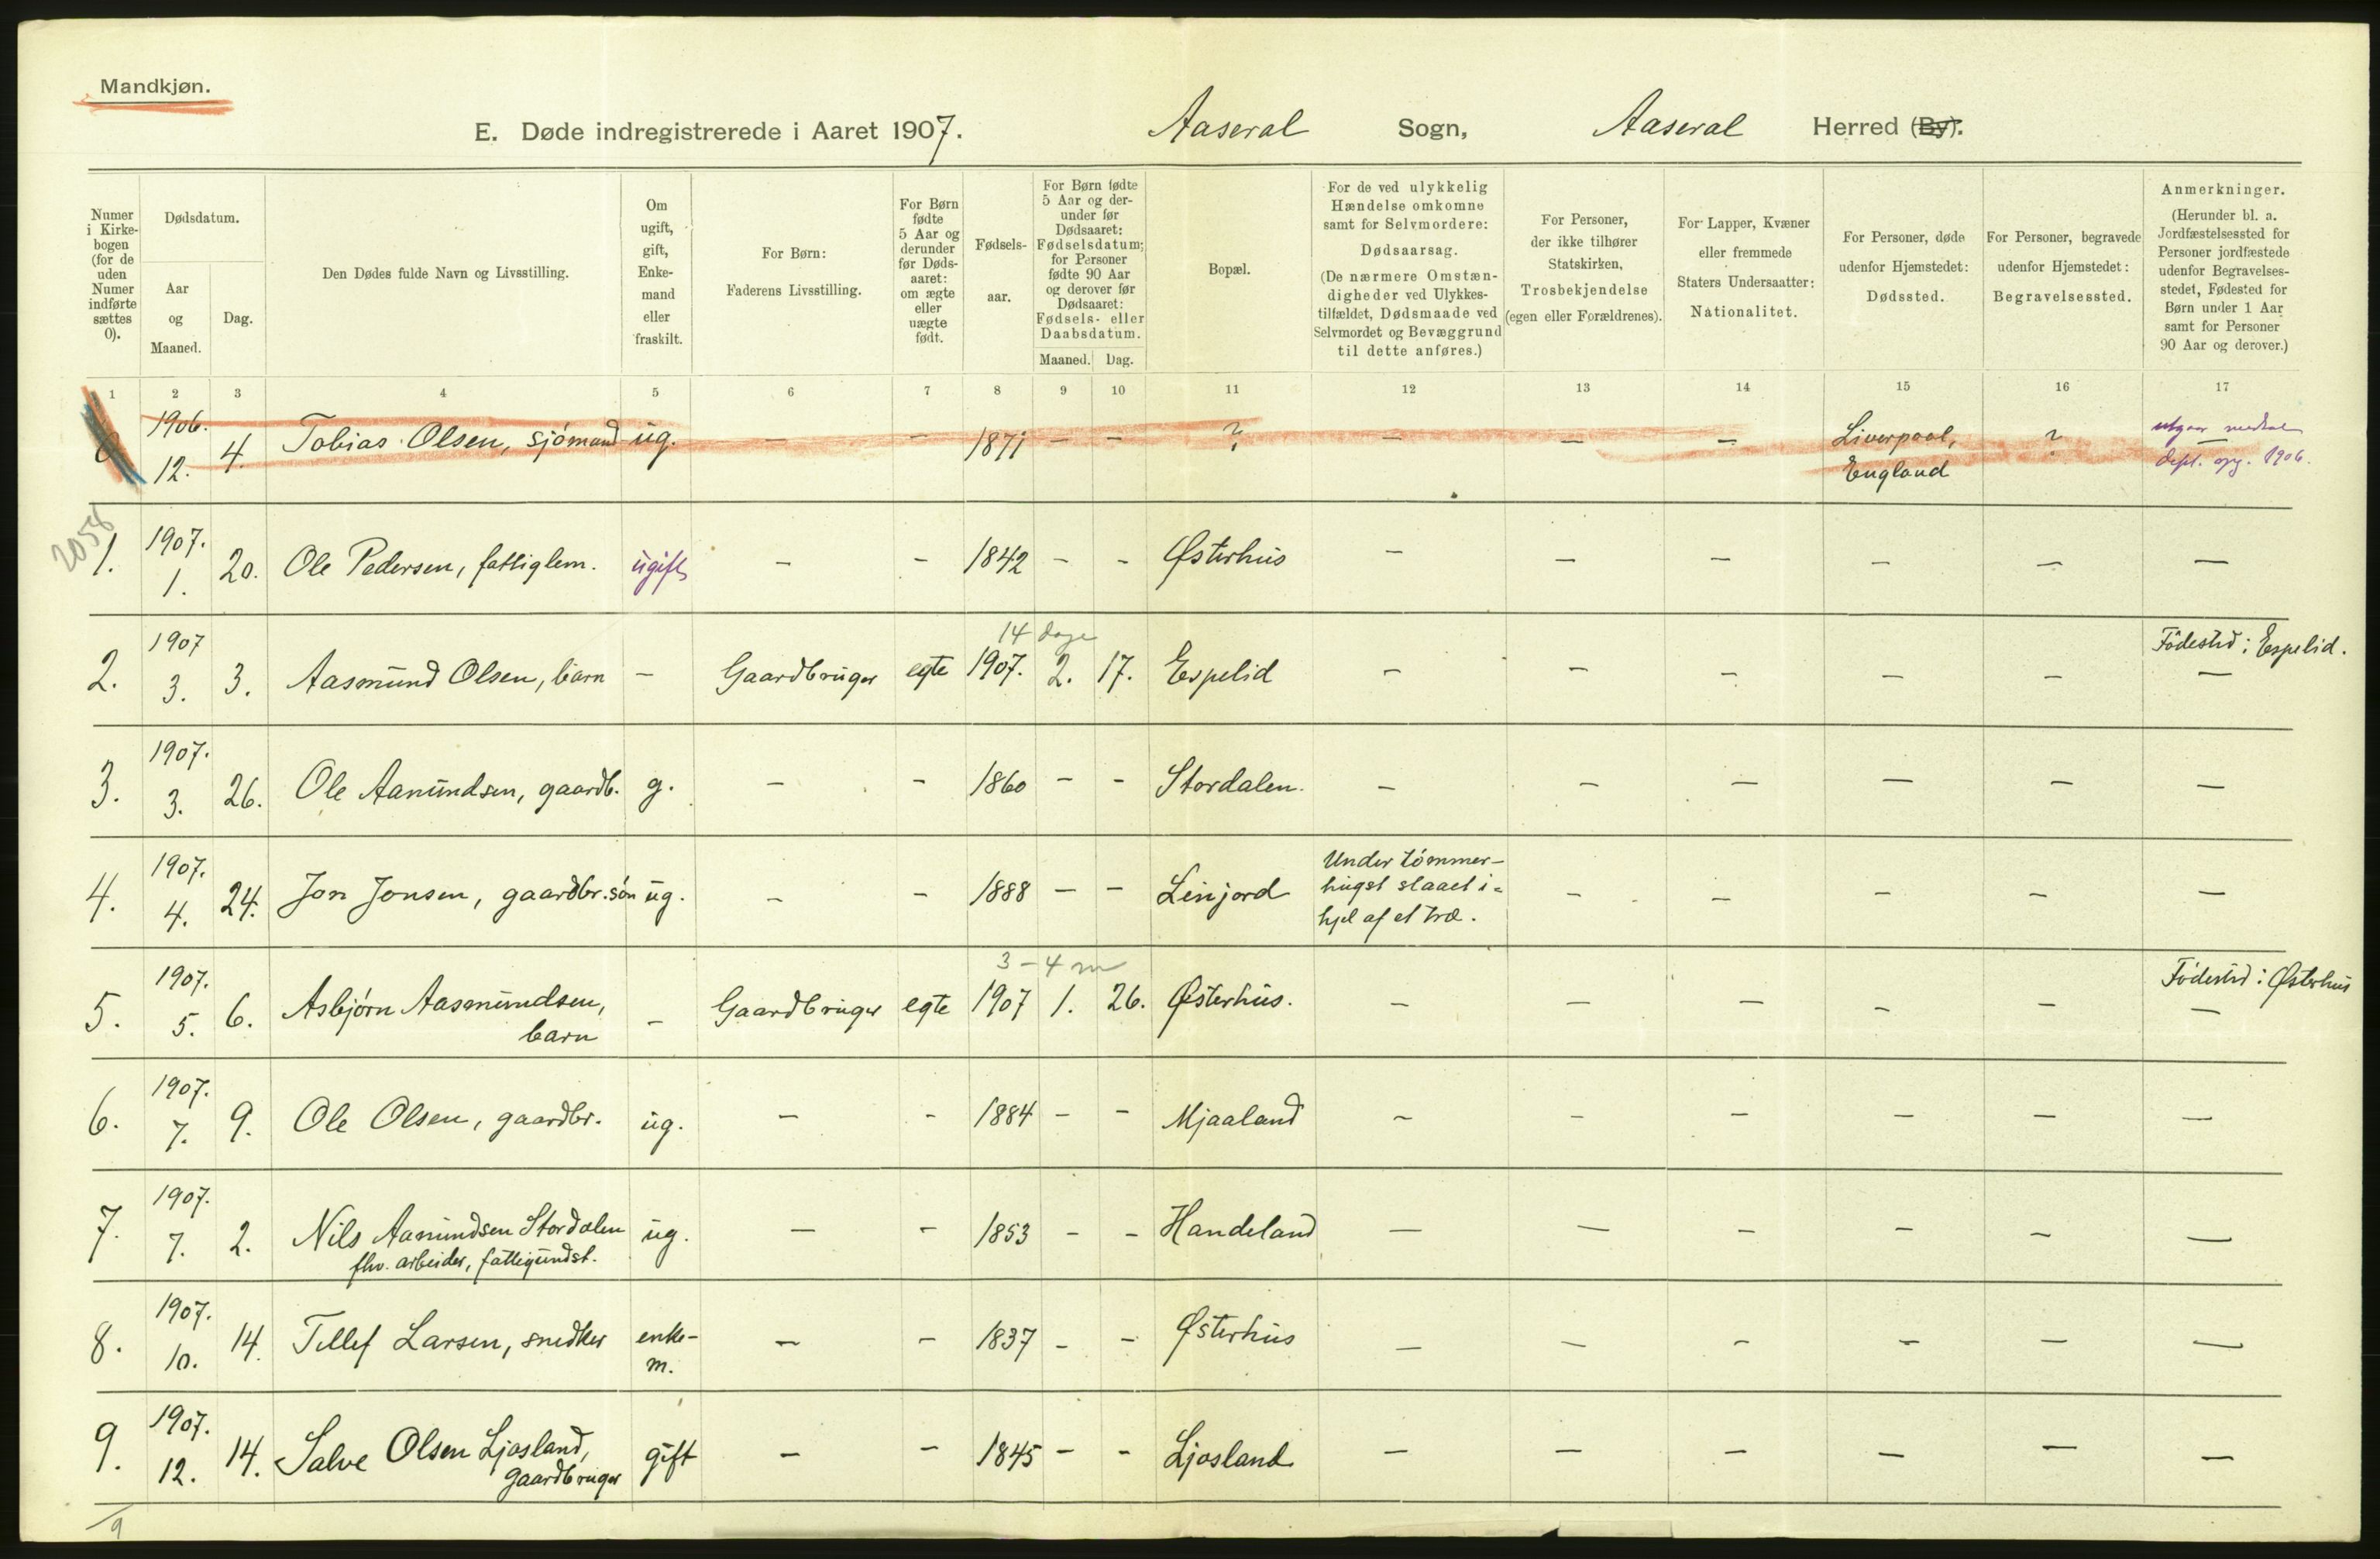 Mandkjøn.
E. Døde indregistrerede i Aaret 1907. Aaseral Sogn, Aaseral Herred (By).
Numer i Kirkebogen (for de uden Numer indførte sættes 0).
Dødsdatum.
Aar og Maaned.
Dag.
Den Dødes fulde Navn og Livsstilling.
Om ugift, gift, Enkemand eller fraskilt.
For Børn: Faderens Livsstilling.
For Børn fødte 5 Aar og derunder før Dødsaaret: om ægte eller uægte født.
Fødselsaar.
For Børn fødte 5 Aar og derunder før Dødsaaret: Fødselsdatum; for Personer fødte 90 Aar og derover før Dødsaaret: Fødsels- eller Daabsdatum.
Maaned. Dag.
Bopæl.
For de ved ulykkelig Hændelse omkomne samt for Selvmordere: Dødsaarsag. (De nærmere Omstændigheder ved Ulykkestilfældet, Dødsmaade ved Selvmordet og Bevæggrund til dette anføres.)
For Personer, der ikke tilhører Statskirken, Trosbekjendelse (egen eller Forældrenes).
For Lapper, Kvæner eller fremmede Staters Undersaatter: Nationalitet.
For Personer, døde udenfor Hjemstedet: Dødssted.
For Personer, begravede udenfor Hjemstedet: Begravelsessted.
Anmerkninger. (Herunder bl. a. Jordfæstelsessted for Personer jordfæstede udenfor Begravelsesstedet, Fødested for Børn under 1 Aar samt for Personer 90 Aar og derover.)
1 2 3 4 5 6 7 8 9 10 11 12 13 14 15 16 17
0 1906. 12. 4. Tobias Olsen, sjömand ug. - - 1871 - - ? - - - Liverpool, England ? -
dept. opg. 1906.
2058
1. 1907. 1. 20. Ole Pedersen, fattiglem. ugift - - 1842 - - Østerhus - - - - - -
14 dage
2. 1907 3. 3. Aasmund Olsen, barn - Gaardbruger egte 1907. 2. 17. Espelid - - - - - Födested: Espelid. -
3. 1907. 3. 26. Ole Aanundsen, gaardb. g. - - 1860 - - Stordalen. - - - - - -
4. 1907. 4. 24. Jon Jonsen, gaardbr.sön ug. - - 1888 - - Linjord Under tömmerhugst slaaet ihjel af et træ. - - - - -
3-4 m
5. 1907. 5. 6. Asbjörn Aasmundsen, barn - Gaardbruger egte 1907 1. 26. Østerhus. - - - - - Födested: Østerhus -
6. 1907. 7. 9. Ole Olsen, gaardbr. ug. - - 1884 - - Mjaaland - - - - - -
7. 1907. 7. 2. Nils Aanundsen Stordalen flv. arbeider, fattigundst. ug. - - 1853 - - Handeland - - - - - -
8. 1907. 10. 14. Tellef Larsen, snedker enkem. - - 1837 - - Østerhus - - - - - -
9. 1907. 12. 14. Salve Olsen Ljosland, gaardbruger gift - - 1845 - - Ljosland - - - - - -
9